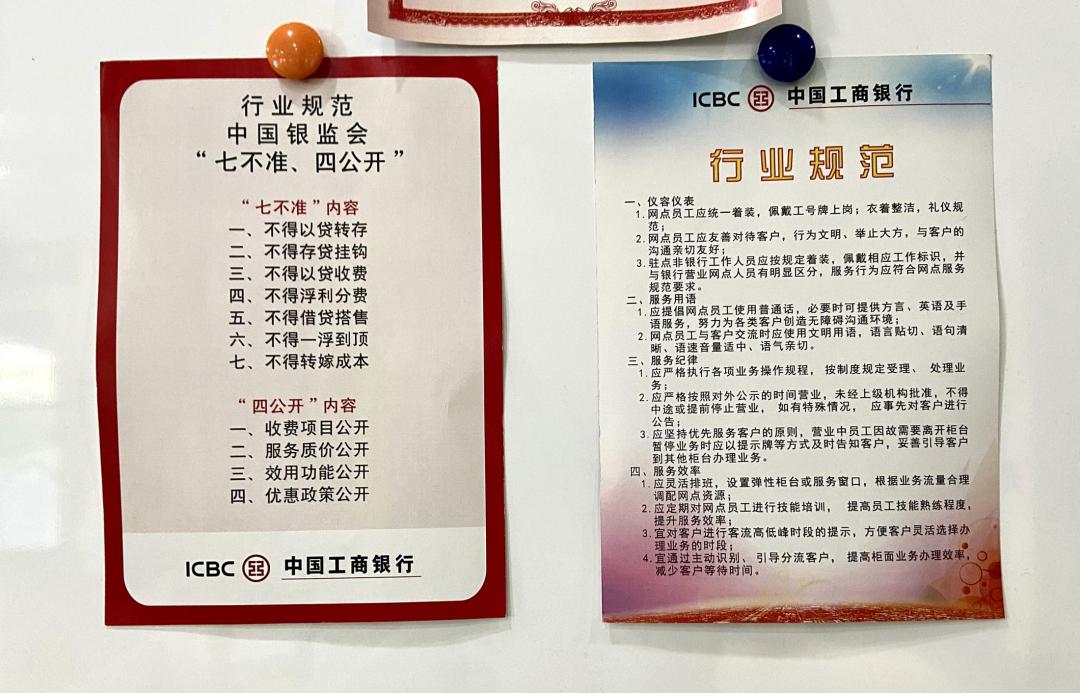 行业规范
中国银监会
“七不准、四公开”
“七不准”内容
一、不得以贷转存
二、不得存贷挂钩
三、不得以贷收费
四、不得浮利分费
五、不得借贷搭售
六、不得一浮到顶
七、不得转嫁成本
“四公开”内容
一、收费项目公开
二、服务质价公开
三、效用功能公开
四、优惠政策公开
ICBC 中国工商银行
ICBC 中国工商银行
行业规范
一、仪容仪表
1.网点员工应统一着装，佩戴工号牌上岗；衣着整洁，礼仪规
范；
2.网点员工应友善对待客户，行为文明、举止大方，与客户的
沟通亲切友好；
3.驻点非银行工作人员应按规定着装，佩戴相应工作标识，并
与银行营业网点人员有明显区分，服务行为应符合网点服务
规范要求。
二、服务用语
1.应提倡网点员工使用普通话，必要时可提供方言、英语及手
语服务，努力为各类客户创造无障碍沟通环境；
2.网点员工与客户交流时应使用文明用语，语言贴切、语句清
晰、语速音量适中、语气亲切。
三、服务纪律
1.应严格执行各项业务操作规程，按制度规定受理、处理业
务；
2.应严格按照对外公示的时间营业，未经上级机构批准，不得
中途或提前停止营业，如有特殊情况，应事先对客户进行
公告；
3.应坚持优先服务客户的原则，营业中员工因故需要离开柜台
暂停业务时应以提示牌等方式及时告知客户，妥善引导客户
到其他柜台办理业务。
四、服务效率
1.应灵活排班，设置弹性柜台或服务窗口，根据业务流量合理
调配网点资源；
2.应定期对网点员工进行技能培训，提高员工技能熟练程度，
提升服务效率；
3.宜对客户进行客流高低峰时段的提示，方便客户灵活选择办
理业务的时段；
4.宜通过主动识别、引导分流客户，提高柜面业务办理效率，
减少客户等待时间。